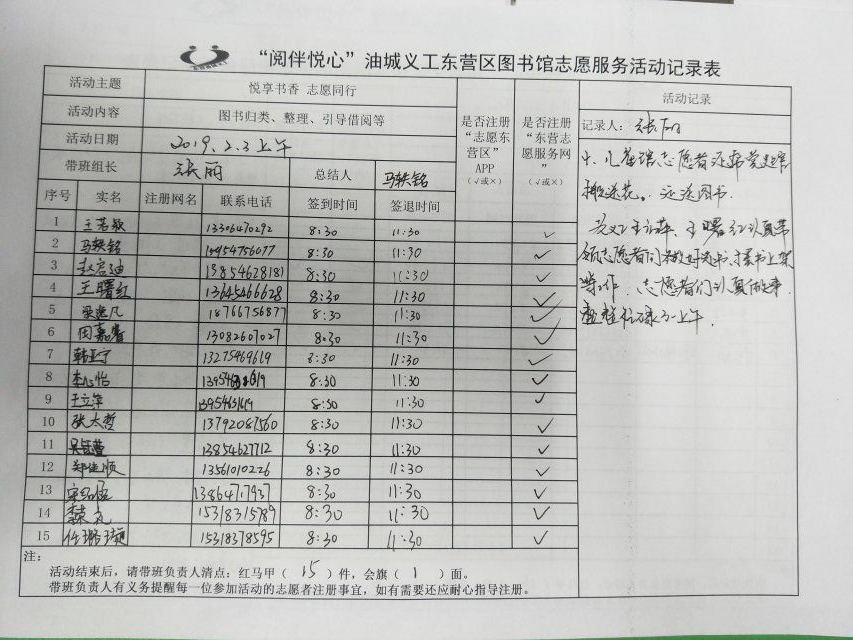 “阅伴悦心”油城义工东营区图书馆志愿服务活动记录表
活动主题 悦享书香 志愿同行
活动内容 图书归类、整理、引导借阅等
活动日期 2019.2.3上午
带班组长 张丽 总结人 马轶铭
序号 实名 注册网名 联系电话 签到时间 签退时间 是否注册“志愿东营区”APP(√或×) 是否注册“东营志愿服务网”(√或×)
1 王若 13306470292 8:30 11:30 ✓
2 马轶铭 15954756077 8:30 11:30 ✓
3 赵启迪 13854628181 8:30 11:30 ✓
4 王曙红 13645466628 8:30 11:30 ✓
5 18766756877 8:30 11:30 ✓
6 田嘉睿 13082607027 8:30 11:30 ✓
7 韩 13275469619 8:30 11:30 ✓
8 李心怡 8:30 11:30 ✓
9 王立萍 8:30 11:30 ✓
10 张太哲 13792087560 8:30 11:30 ✓
11 13854627712 8:30 11:30 ✓
12 郑佳顺 13561010226 8:30 11:30 ✓
13 8:30 11:30 ✓
14 15318315789 8:30 11:30 ✓
15 任 15318378595 8:30 11:30 ✓
活动记录
记录人：张丽
志愿者还帮
搬送花。运送图书.
王立萍、王曙红认真带
领志愿者们
操作. 志愿者们认真做事.
忙碌了一上午.
注：
活动结束后，请带班负责人清点：红马甲（ 15 ）件，会旗（ 1 ）面。
带班负责人有义务提醒每一位参加活动的志愿者注册事宜，如有需要还应耐心指导注册。